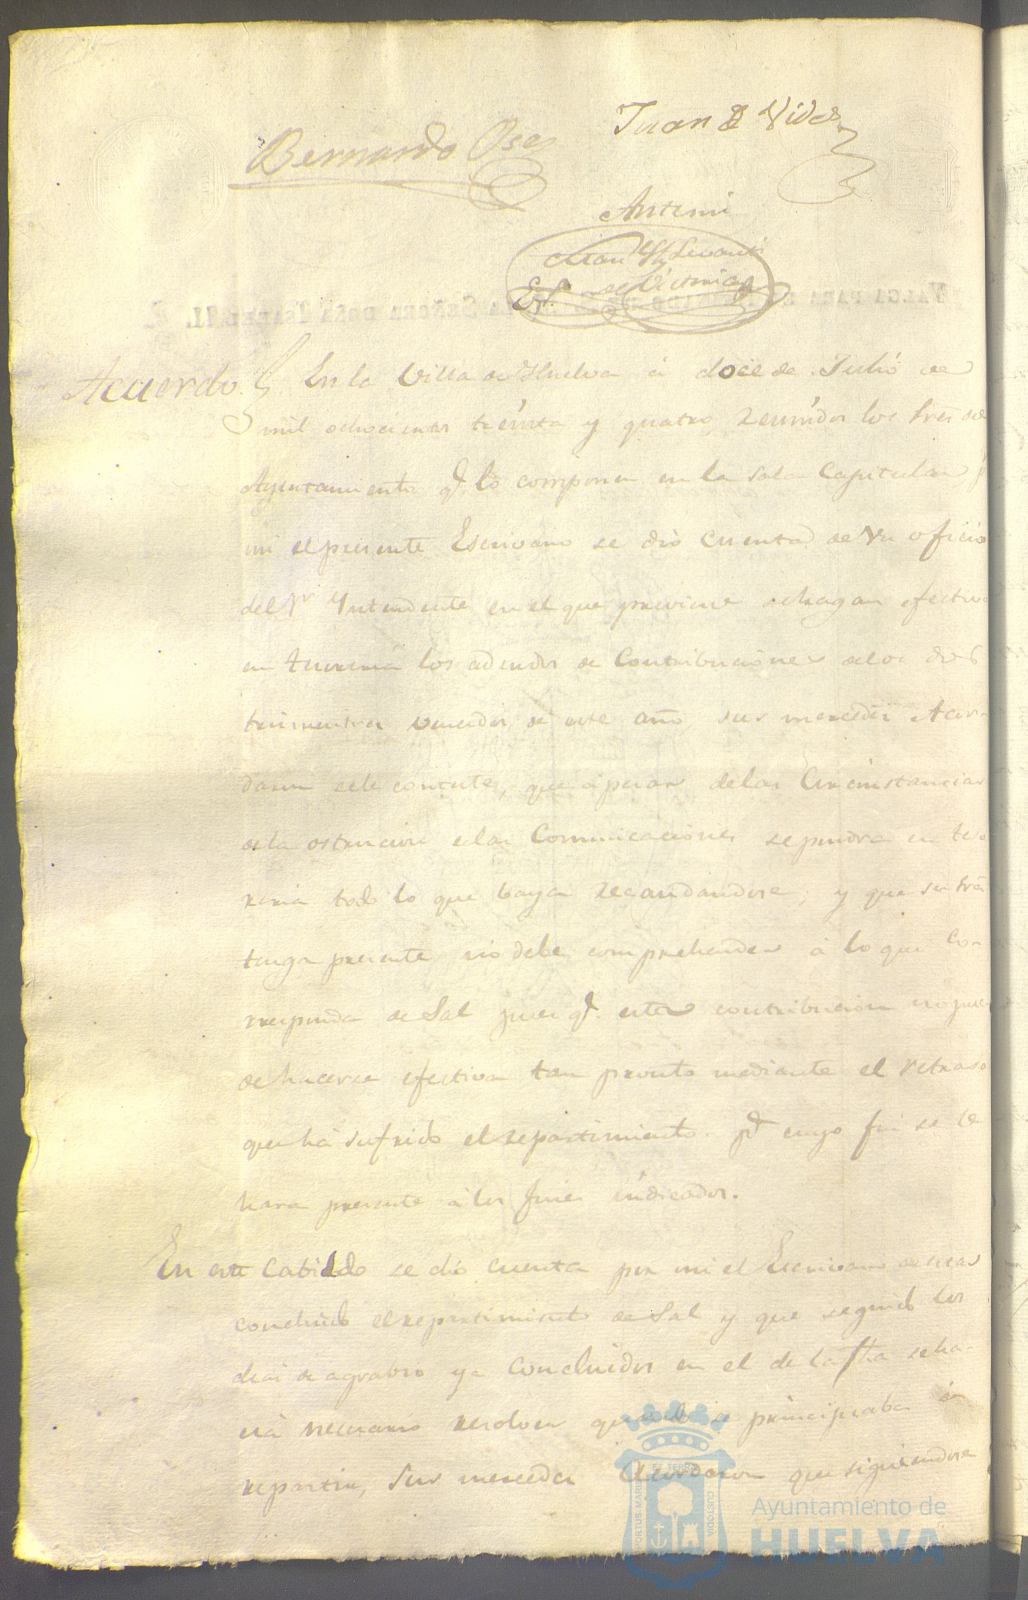 Bernardo Ose
Juan Videz
Antemi
Acuerdo. En la Villa de Huelva á doce de Julio de
mil ochocientos treinta y quatro, reunidos los Sres de
Ayuntamiento q.e lo componen en la Sala Capitular p.r
mi el presente Escrivano se dió cuenta de un oficio
del Sr Yntendente en el que previene se hagan efectivo
en tesoreria los adeudos de Contribuciones de los dos
trimestres vencidos de este año sus mercedes Acor-
daron se le conteste, que á pesar de las Circunstancias
de la de las Comunicaciones se pondra en teso
reria todo lo que baya recaudandose, y que
tenga presente no debe comprehender á lo que co-
rresponda de Sal pues q.e esta contribucion no puede
de hacerse efectiva tan pronto mediante el retraso
que há sufrido el repartimiento. p.a cuyo fin se le
hara presente á los fines indicados.
En este Cabildo se dió cuenta por mi el Escrivano de estar
concluido el repartimiento de Sal y que los
dias de agravio ya Concluidos en el de la fha se ha-
cia necesario resolver quando se principiaba á
repartir, Sus mercedes Acordaron que siguiendose
VALGA PARA EL REINADO DE LA SEÑORA DOÑA ISABEL II.
PORTUS MARIS ET TERRAE CUSTODIA
Ayuntamiento de
HUELVA